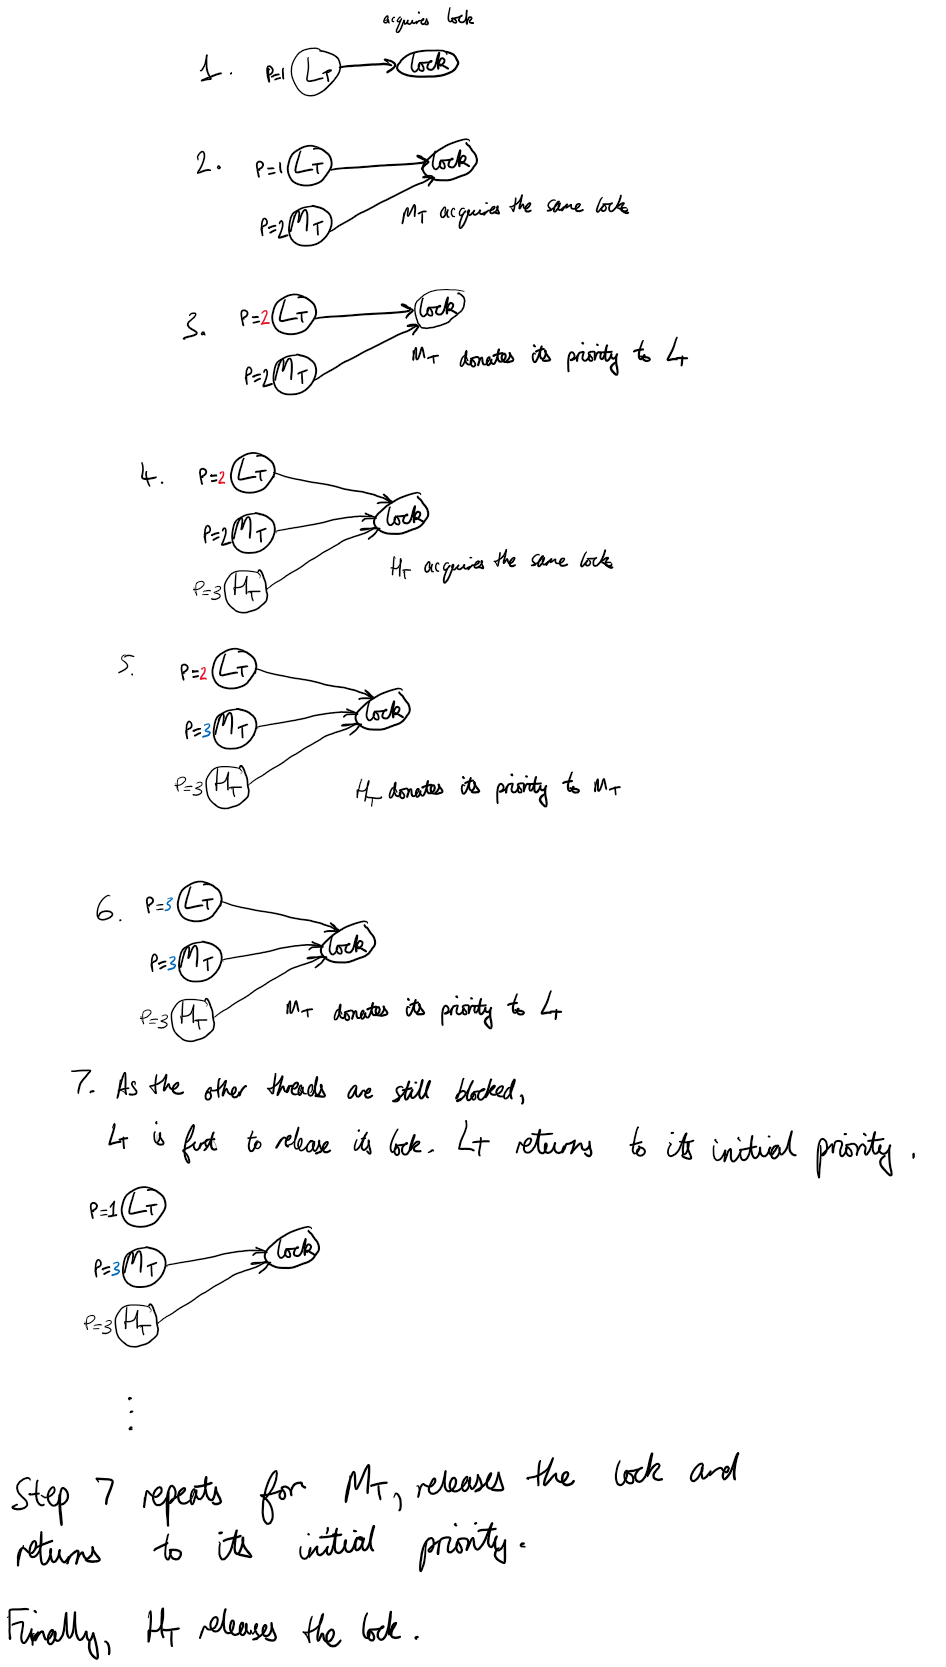 acquires lock
1. P=1 LT lock
2. P=1 LT lock
P=2 MT
MT acquires the same lock
3. P=2 LT lock
P=2 MT
MT donates its priority to LT
4. P=2 LT
P=2 MT lock
P=3 HT
HT acquires the same lock
5. P=2 LT
P=3 MT lock
P=3 HT
HT donates its priority to MT
6. P=3 LT
P=3 MT lock
P=3 HT
MT donates its priority to LT
7. As the other threads are still blocked,
LT is first to release its lock. LT returns to its initial priority.
P=1 LT
P=3 MT lock
P=3 HT
⋮
Step 7 repeats for MT, releases the lock and
returns to its initial priority.
Finally, HT releases the lock.